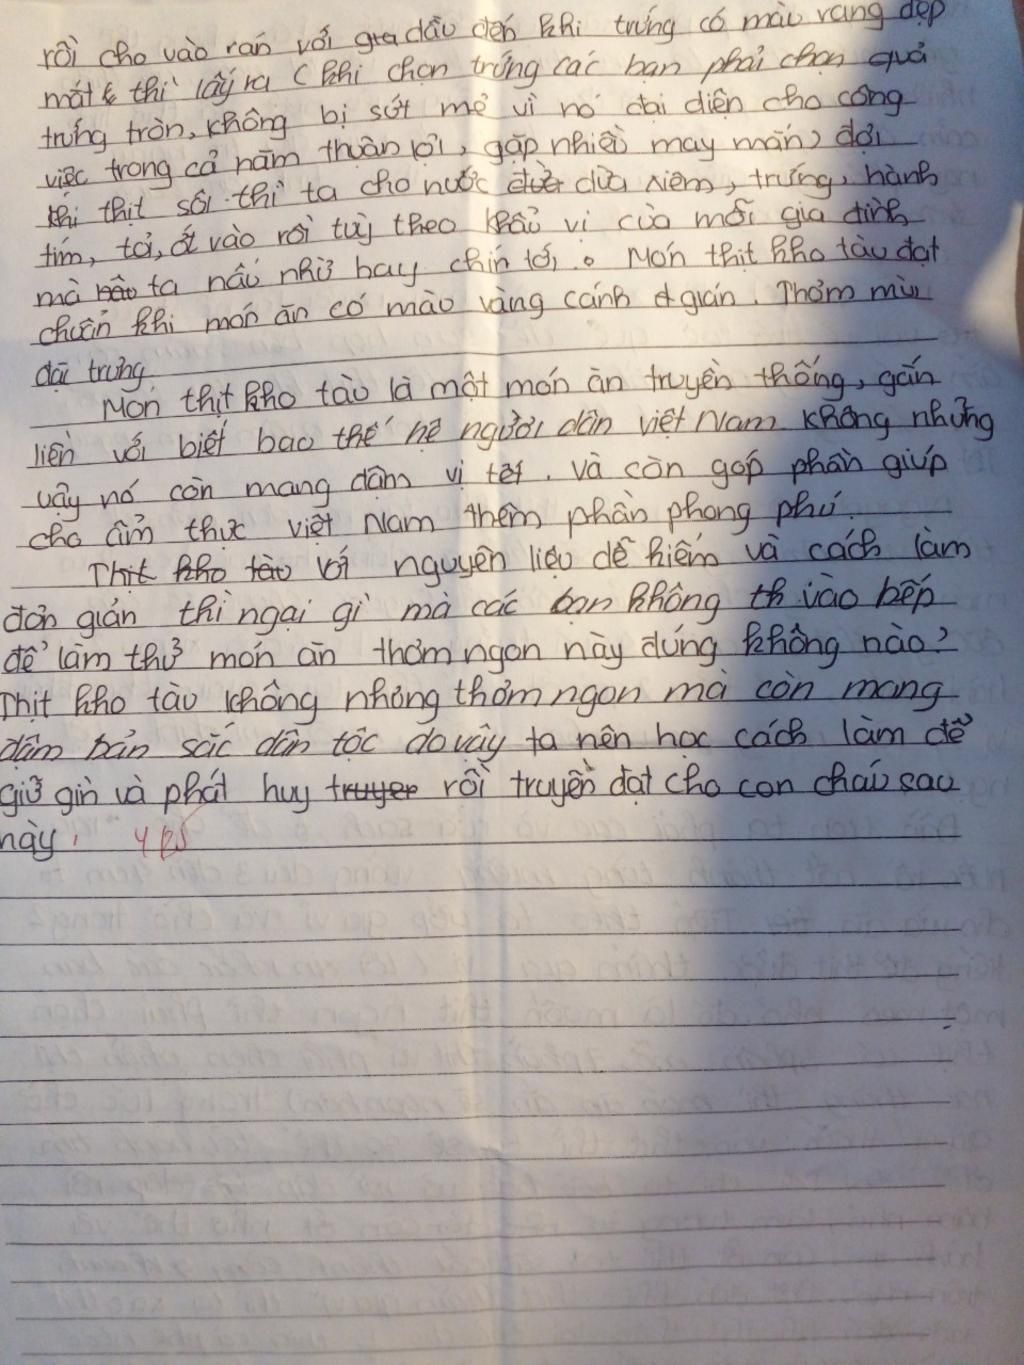 rồi cho vào rán với gia dầu đến khi trứng có màu vang đẹp
mắt thì lấy ra ( khi chọn trứng các bạn phải chọn quả
trưng tròn, không bị sứt mẻ vì nó đại diện cho công
việc trong cả năm thuận lợi, gặp nhiều may mắn) đợi
khi thịt sôi thì ta cho nước dừa xiêm, trứng, hành
tím, tỏi, ớt vào rồi tùy theo khẩu vị của mỗi gia đình
mà ta nấu nhừ hay chín tới. Món thịt kho tàu đạt
chuẩn khi món ăn có màu vàng cánh gián. Thơm mùi
đặc trưng
Món thịt kho tàu là một món ăn truyền thống, gắn
liền với biết bao thế hệ người dân việt Nam không những
vậy nó còn mang đậm vị tết. và còn góp phần giúp
cho ẩm thực việt Nam thêm phần phong phú.
Thịt kho tàu với nguyên liệu dễ kiếm và cách làm
đơn giản thì ngại gì mà các bạn không vào bếp
để làm thử món ăn thơm ngon này đúng không nào?
Thịt kho tàu không những thơm ngon mà còn mang
đậm bản sắc dân tộc do vậy ta nên học cách làm để
giữ gìn và phát huy rồi truyền đạt cho con cháu sau
này.